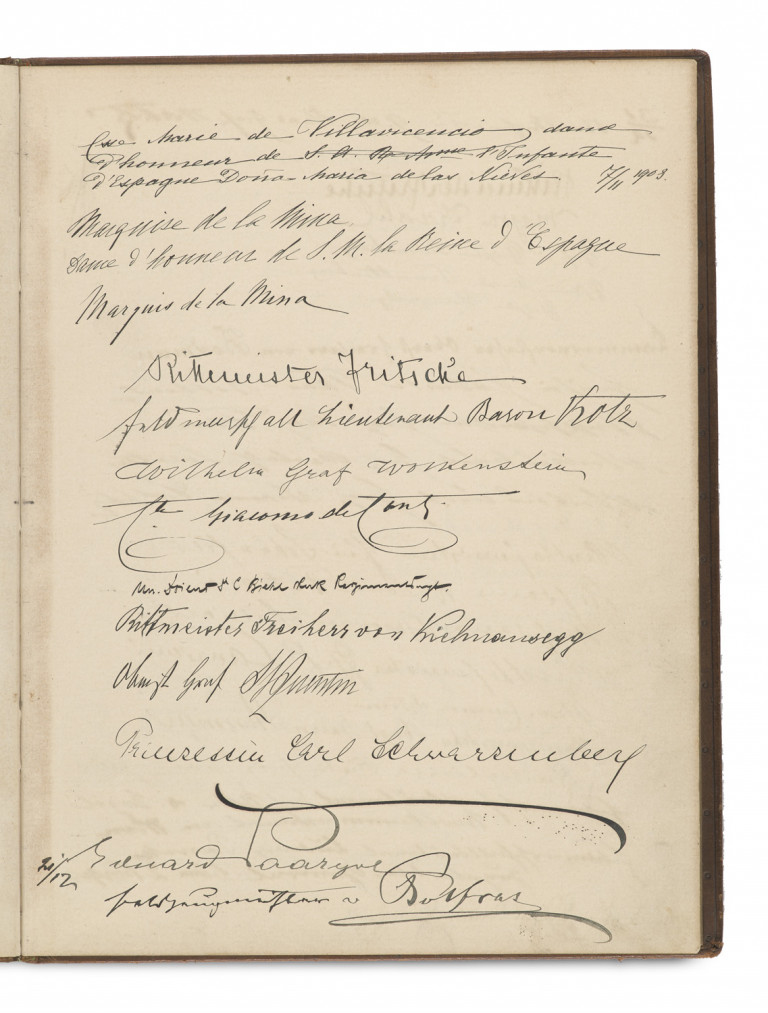 Csse Marie de Villavicencio, dame
d'honneur de S. A. l'Infante
d'Espagne Doña Maria de las Nieves 7/11 1903.
Marquise de la Mina
Dame d'honneur de S. M. la Reine d'Espagne
Marquis de la Mina
Rittmeister Fritsche
Feldmarschall Lieutenant Baron Kotz
Wilhelm Graf Wolkenstein
Giacomo de Conti
Rittmeister Freiherr von Kielmansegg
Oberst Graf St Quentin
Prinzessin Carl Schwarzenberg
Eduard Paar
21/12
Feldzeugmeister v Bolfras